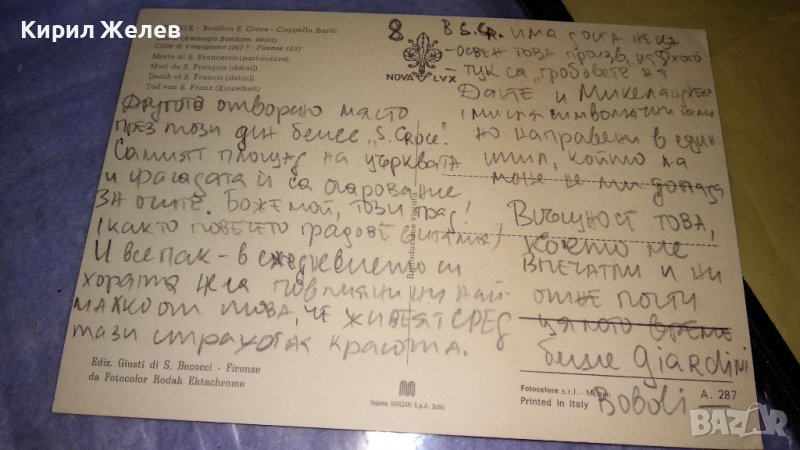 Кирил Желев
FIRENZE - Basilica S. Croce - Cappella Bardi
(Ambrogio Bondone, detto)
Colle di Vespignano 1267 ? - Firenze 1337
Morte di S. Francesco (particolare)
Mort de S. François (détail)
Death of S. Francis (detail)
Tod von S. Franz (Einzelheit)
8
NOVA LVX
Другото отворено място
през този ден беше „S. CROCE".
Самият площад на църквата
и фасадата ѝ са очарование
за очите. Боже мой, този град!
(както повечето градове в Италия)
И все пак - в ежедневието си
хората не са повлияни ни най-
малко от това, че живеят сред
тази страхотна красота.
В S. CR. има доста неща
освен това произв. на Джото
- тук са „гробовете" на
Данте и Микеланджело
(мисля символични само)
но направени в един
стил, който на
мене не ми допада
Всъщност това,
което ме
впечатли и ни
отне почти
цялото време
беше Giardini
Boboli
Riproduzione vietata
Ediz. Giusti di S. Becocci - Firenze
da Fotocolor Kodak Ektachrome
Sagoma MARZARI S.p.A. Schio
Fotocelere s.r.l. - Milano
Printed in Italy
A. 287
BAZAR